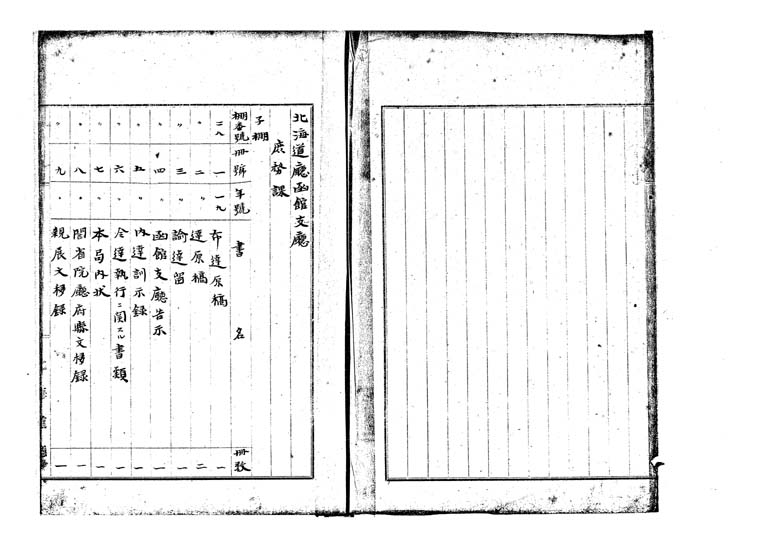 北海道廳函館支廳
庶務課
子棚
棚番號 冊號 年號 書名 冊数
二八 一 一九 布達原稿 一
〃 二 〃 達原稿 二
〃 三 〃 諭達留 一
〃 四 〃 函館支廳告示 一
〃 五 〃 内達訓示録 一
〃 六 〃 令達執行ニ関スル書類 一
〃 七 〃 本局内状 一
〃 八 〃 閣省院廳府縣文移録 一
〃 九 〃 親展文移録 一